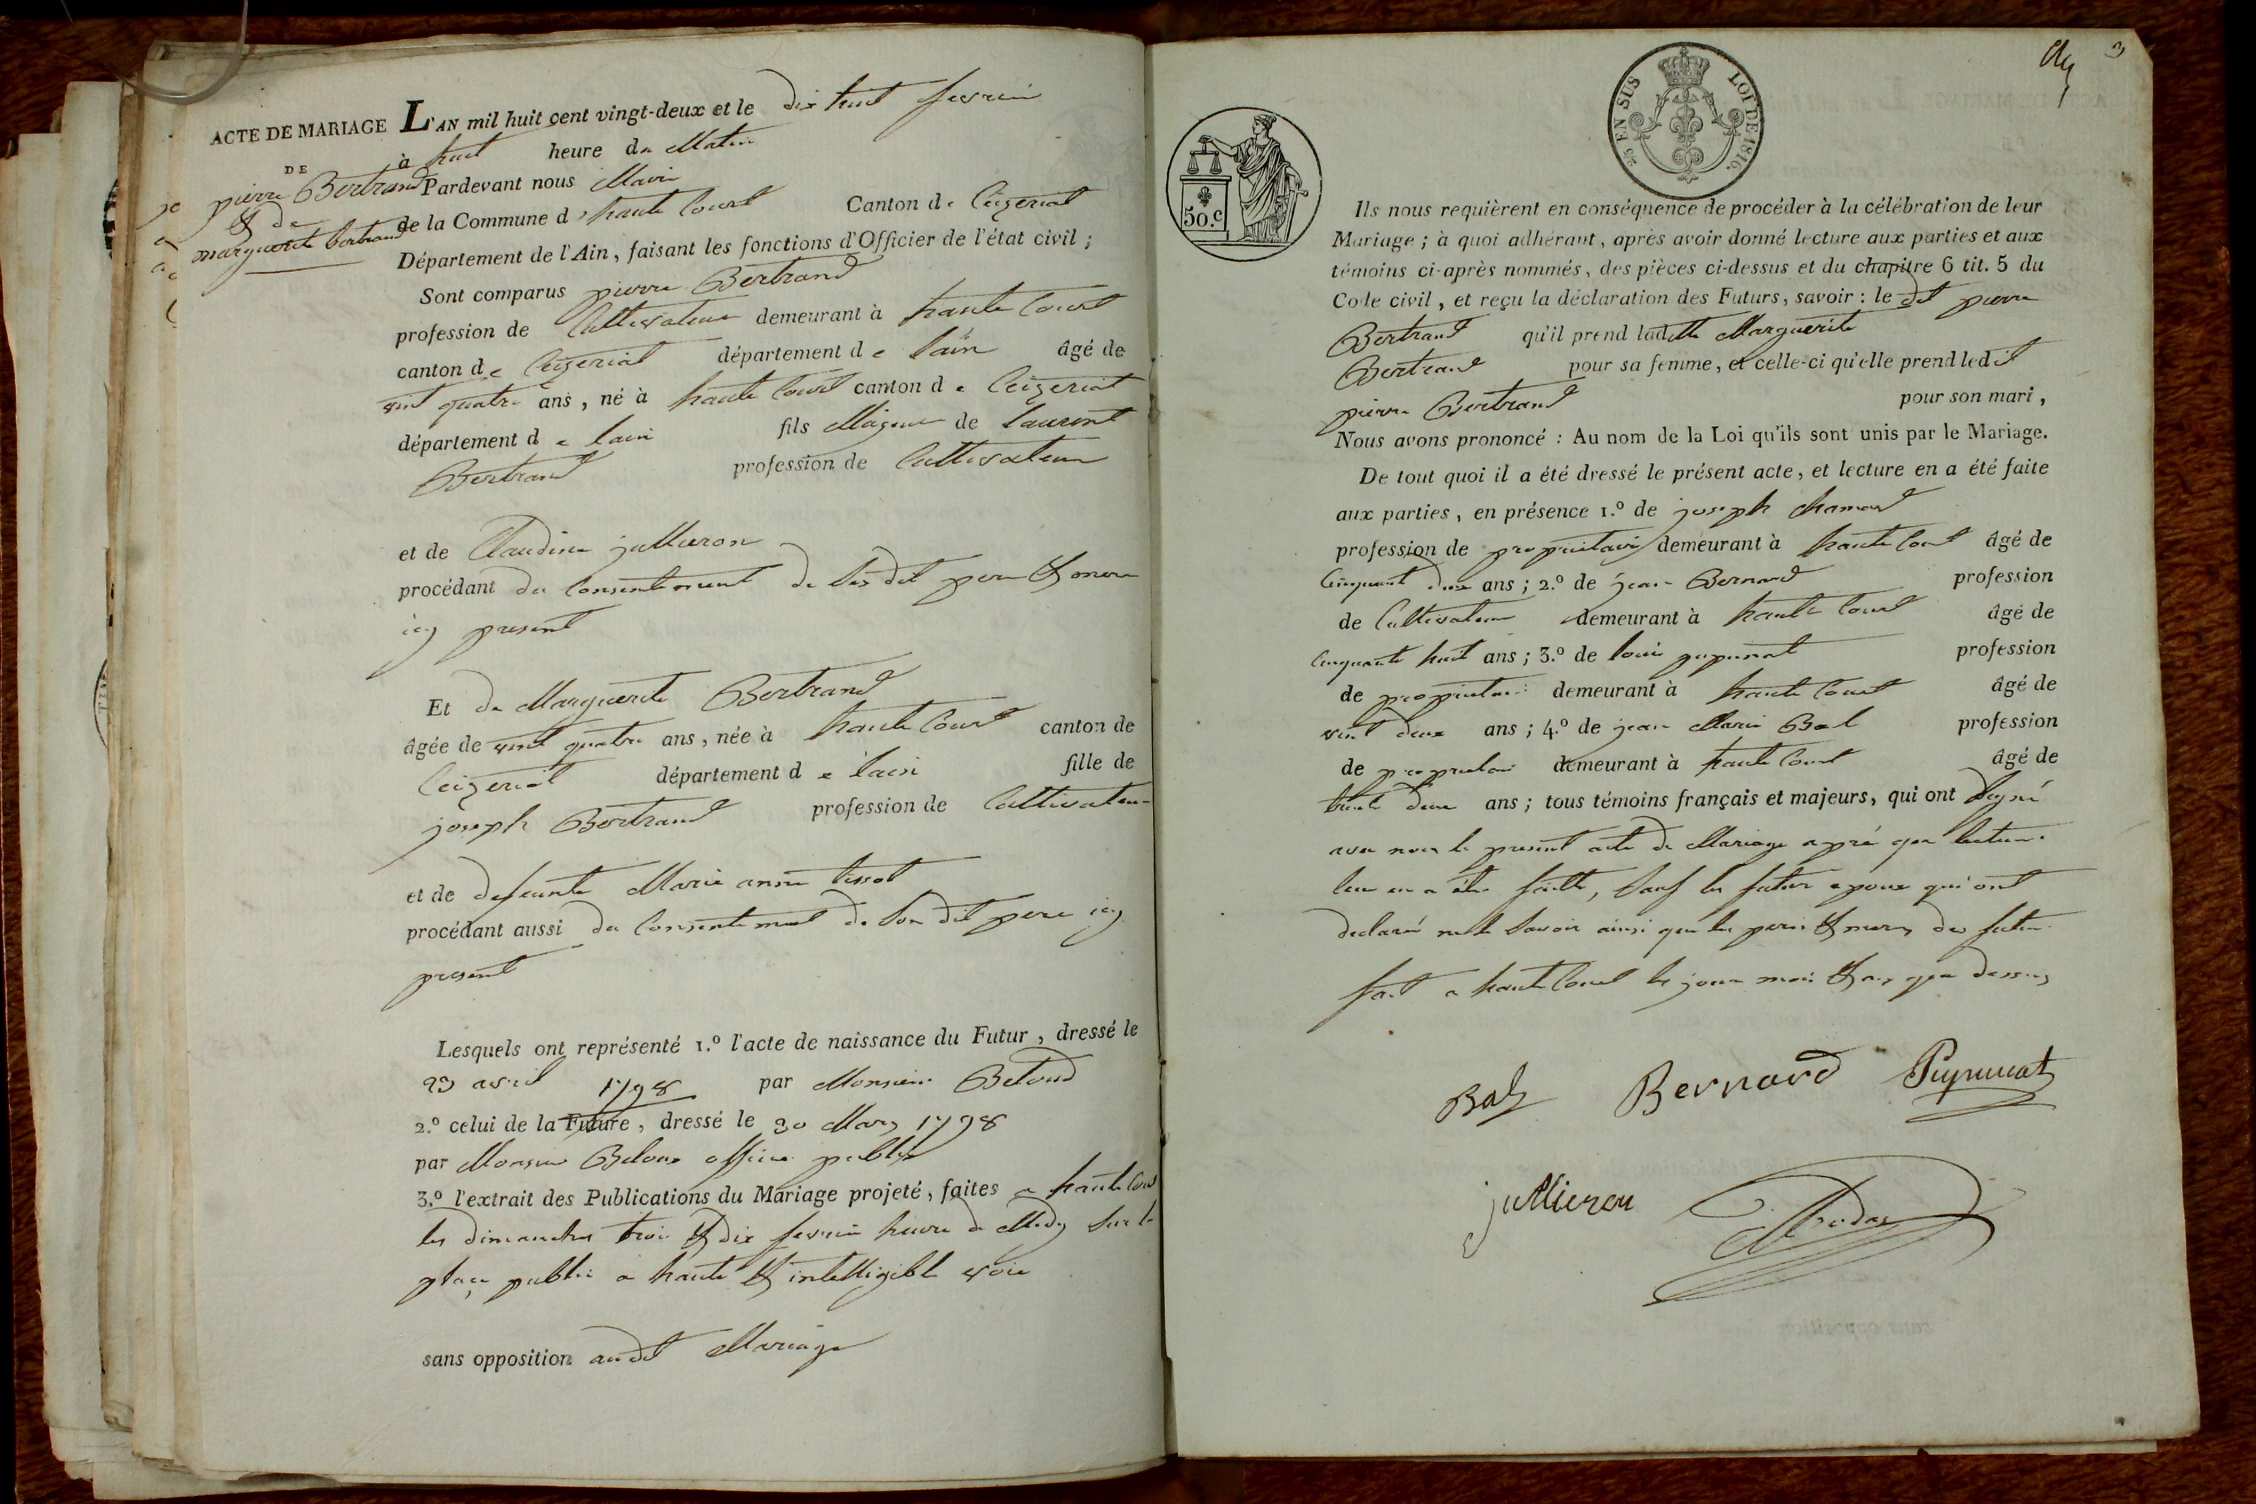 ACTE DE MARIAGE
DE
pierre Bertrand
& de
marguerite bertrand
L'AN mil huit cent vingt-deux et le dix huit fevrier
à huit heure du Matin
Pardevant nous Maire
de la Commune d haute Court Canton de Ceizeriat
Département de l'Ain, faisant les fonctions d'Officier de l'état civil ;
Sont comparus pierre Bertrand
profession de Cultivateur demeurant à haute Court
canton de Ceizeriat département de lain âgé de
vint quatre ans, né à haute Court canton de Ceizeriat
département de lain fils Majeur de laurent
Bertrand profession de Cultivateur
et de Claudine jullieron
procédant du Consentement de les dit pere & mere
icy present
Et de Marguerite Bertrand
âgée de vint quatre ans, née à haute Court canton de
Ceizeriat département de lain fille de
joseph Bertrand profession de Cultivateur
et de defeunte Marie anne tissot
procédant aussi du Consentement de Son dit pere icy
present
Lesquels ont représenté 1.º l'acte de naissance du Futur, dressé le
23 avril 1798 par Monsieur Beloud
2.º celui de la Future, dressé le 30 Mars 1798
par Monsieur Beloud officier public
3.º l'extrait des Publications du Mariage projeté, faites a haute Court
les dimanches trois & dix fevrier heure de Midy Sur la
place public a haute & intelligible voie
sans opposition audit Mariage
3
25 EN SUS LOI DE 1816.
50.c
Ils nous requièrent en conséquence de procéder à la célébration de leur
Mariage ; à quoi adhérant, après avoir donné lecture aux parties et aux
témoins ci-après nommés, des pièces ci-dessus et du chapitre 6 tit. 5 du
Code civil, et reçu la déclaration des Futurs, savoir : le dit pierre
Bertrand qu'il prend ladette Marguerite
Bertrand pour sa femme, et celle-ci qu'elle prend ledit
pierre Bertrand pour son mari,
Nous avons prononcé : Au nom de la Loi qu'ils sont unis par le Mariage.
De tout quoi il a été dressé le présent acte, et lecture en a été faite
aux parties, en présence 1.º de joseph
profession de propriétaire demeurant à haute Court âgé de
Cinquant deux ans ; 2.º de jean Bernard profession
de Cultivateur demeurant à haute Court âgé de
Cinquante huit ans ; 3.º de louis profession
de propriétaire demeurant à haute Court âgé de
vint deux ans ; 4.º de jean Marie Bal profession
de propriétaire demeurant à haute Court âgé de
trente deux ans ; tous témoins français et majeurs, qui ont Signé
avec nous le present acte de Mariage apré que lecture
leur en a été faitte, Sauf les futur epoux qui ont
declaré ne le Savoir ainsi que les peres & meres des futur
fait a haute Court le jour mois & an que dessus
Bal Bernard
jullieron